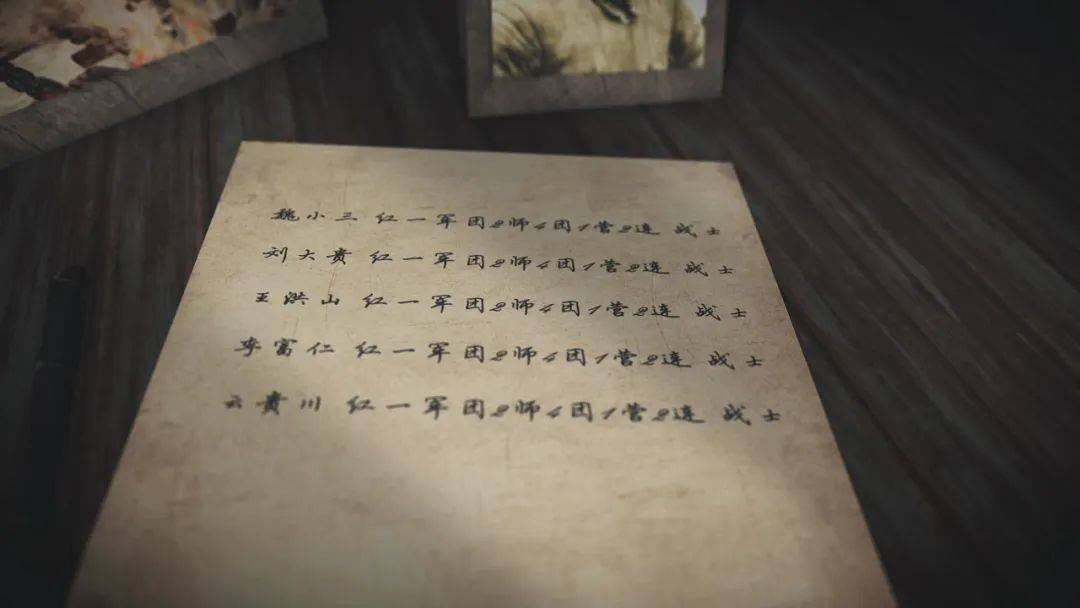 魏小三 红一军团2师4团1营2连 战士
刘大贵 红一军团2师4团1营2连 战士
王洪山 红一军团2师4团1营2连 战士
李富仁 红一军团2师4团1营2连 战士
云贵川 红一军团2师4团1营2连 战士